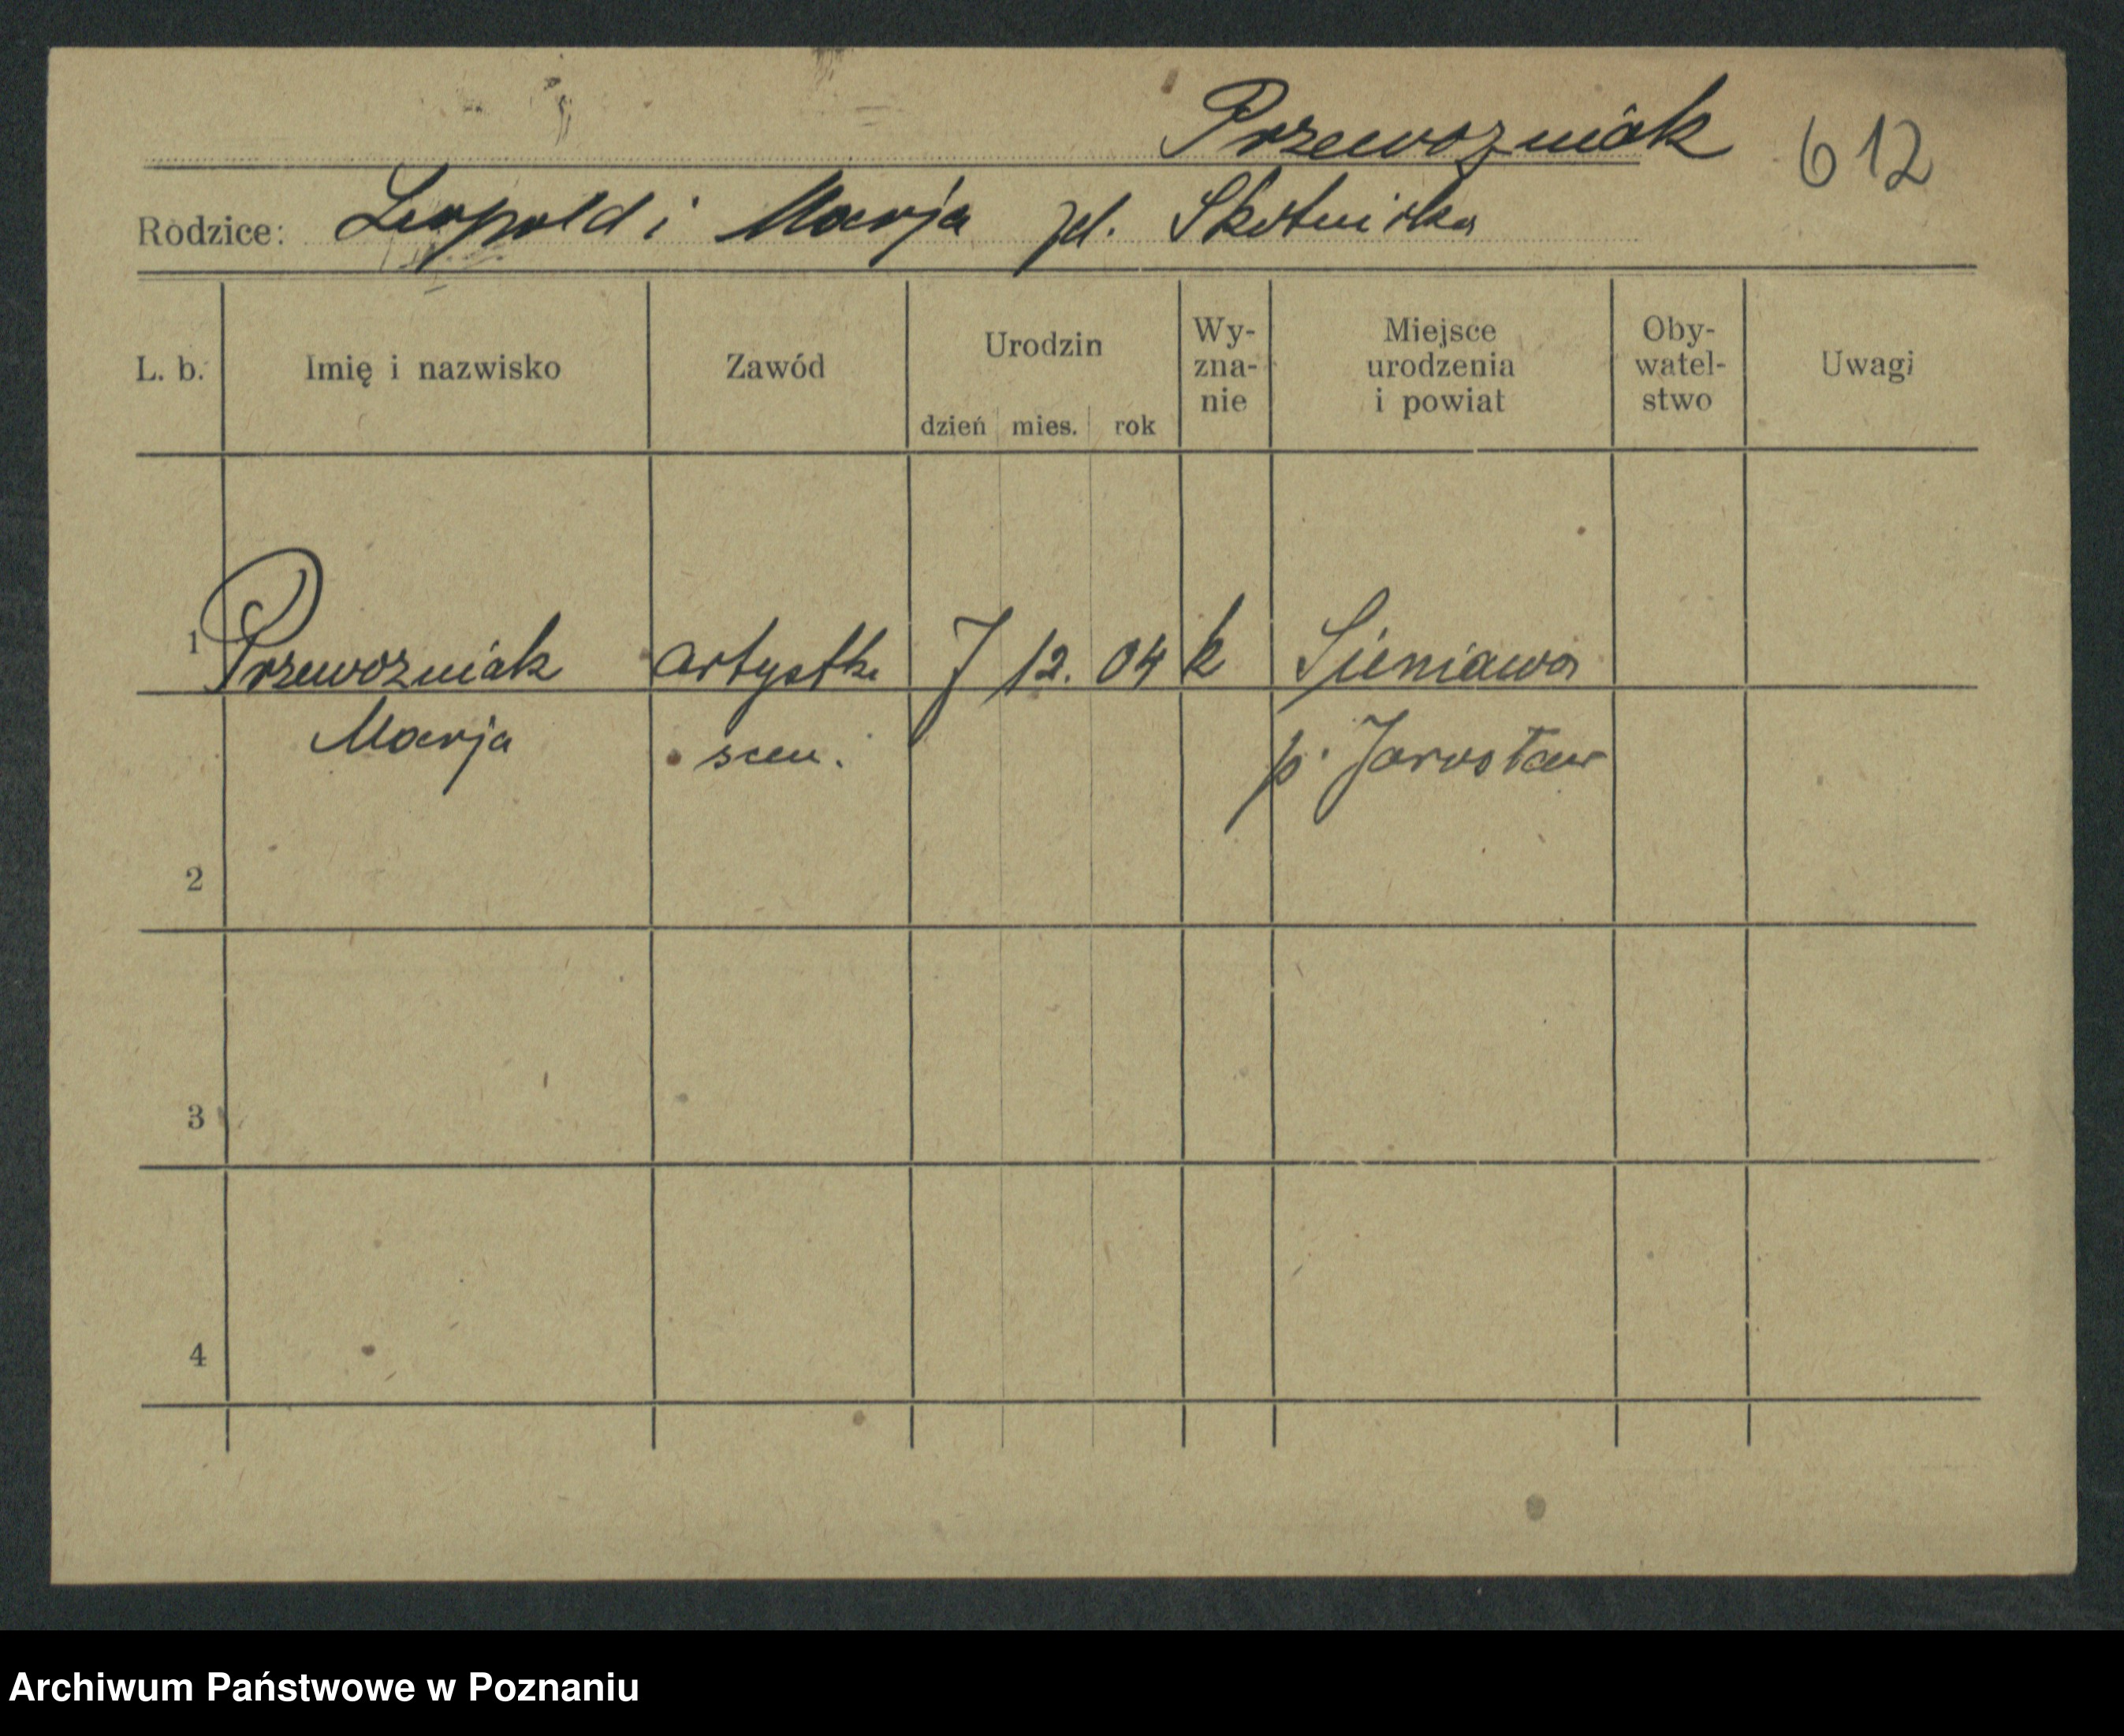 Przewozniak 612
Rodzice: Leopold i Marja zd. Skotnicka
L. b. Imię i nazwisko Zawód Urodzin dzień mies. rok Wy-zna-nie Miejsce urodzenia i powiat Oby-watel-stwo Uwagi
1 Przewozniak artystka 7 12. 04 k Sieniawa
Marja scen. p. Jarosław
2
3
4
Archiwum Państwowe w Poznaniu